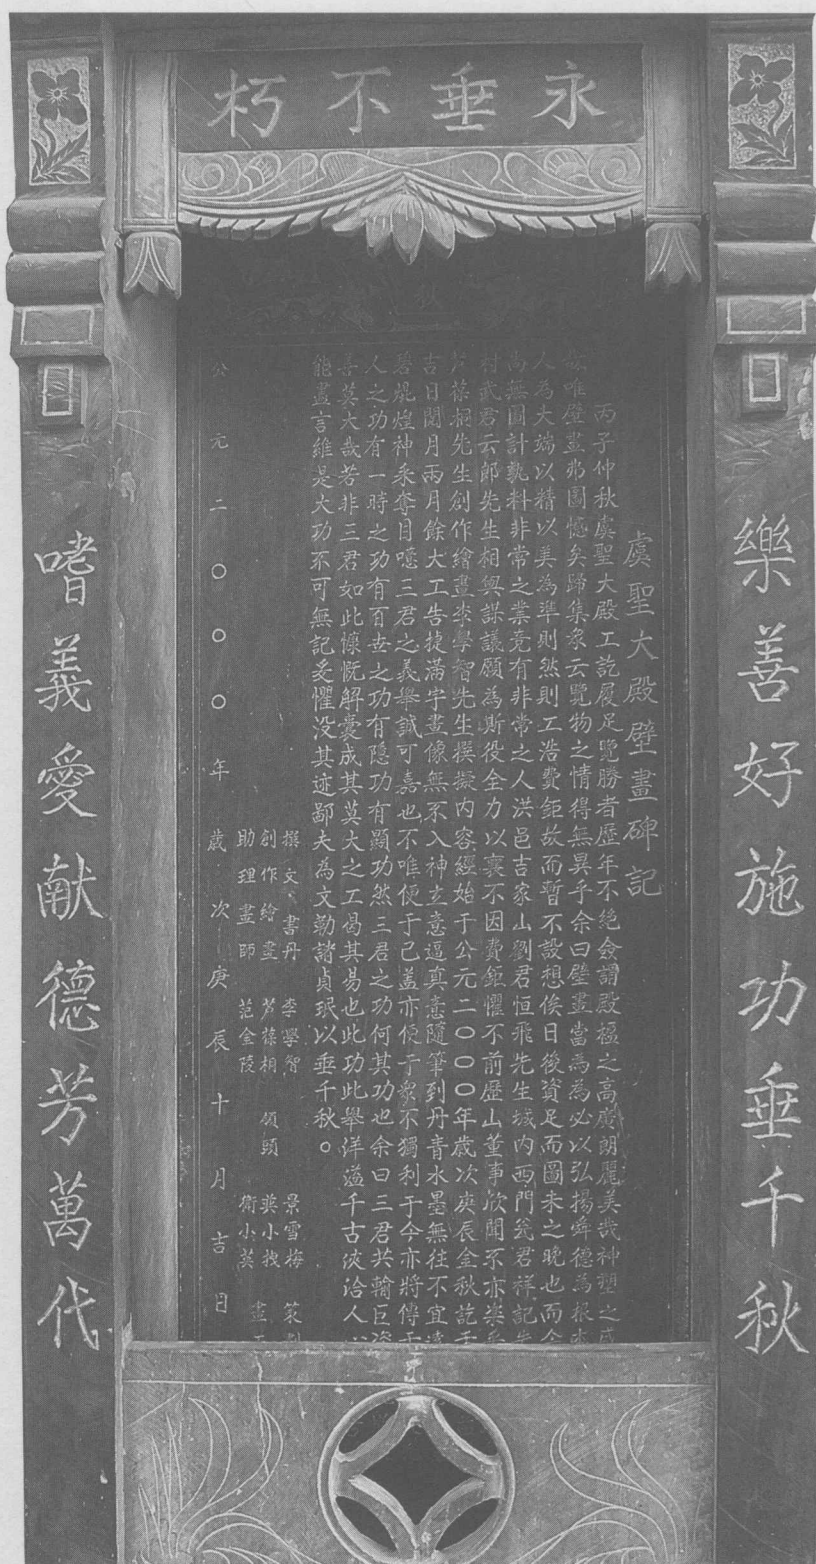 永垂不朽
樂善好施功垂千秋
嗜義愛献德芳萬代
虞聖大殿壁畫碑記
丙子仲秋虞聖大殿工訖履足覽勝者歷年不絶僉謂殿楹之高廣朗麗美哉神塑之
唯壁畫弗圖憾矣歸集衆云覽物之情得無異乎余曰壁畫當為為必以弘揚舜德為根
人為大端以精以美為準則然則工浩費鉅故而暫不設想俟日後資足而圖未之晚也而
無圖計孰料非常之業竟有非常之人洪邑吉家山劉君恒飛先生城内西門㕙君祥記
村武君云郎先生相與謀議願為斯役全力以襄不因費鉅懼不前歷山董事欣聞不亦樂乎
葆桐先生創作繪畫李學智先生撰擬内容經始于公元二〇〇〇年歲次庚辰金秋訖于
吉日閱月兩月餘大工告捷滿宇畫像無不入神立意逼真意隨筆到丹青水墨無往不宜
碧焜煌神采奪目噫三君之義舉誠可嘉也不唯便于己盖亦便于衆不獨利于今亦將傳于
人之功有一時之功有百世之功有隱功有顯功然三君之功何其功也余曰三君共輸巨資
善莫大哉若非三君如此慷慨解囊成其莫大之工曷其易也此功此舉洋溢千古浹洽人
能盡言維是大功不可無記爰懼没其迹鄙夫為文勒諸貞珉以垂千秋。
撰文、書丹 李學智 景雪梅
創作繪畫 芦葆相 領頭
助理畫師 范金陵 衛小英
公元二〇〇〇年歲次庚辰十月吉日